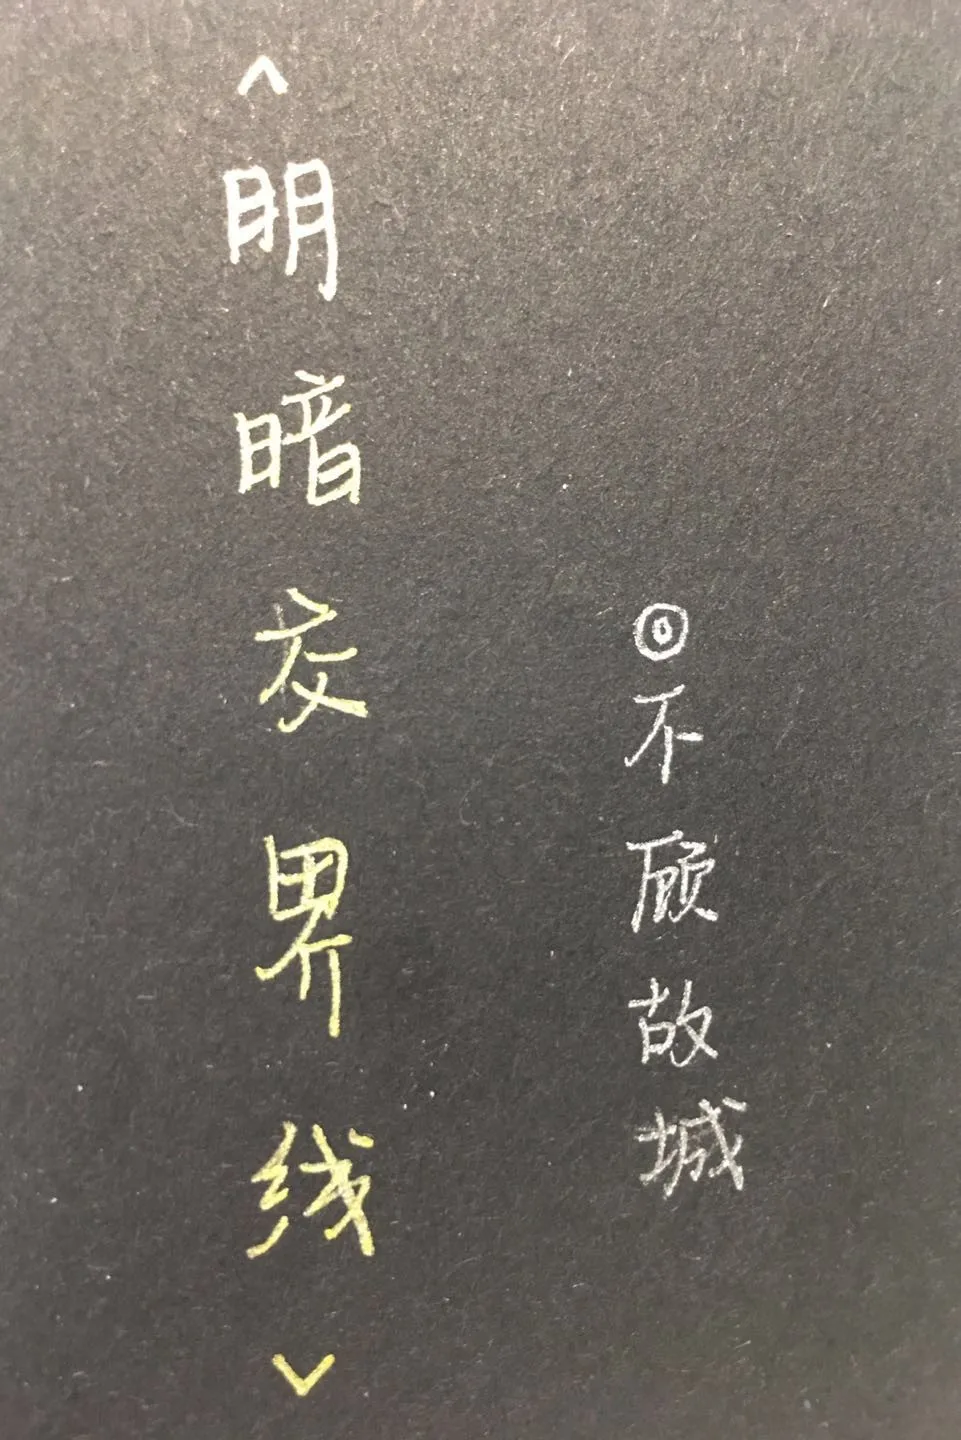 ︿明暗交界线﹀
◎不顾故城